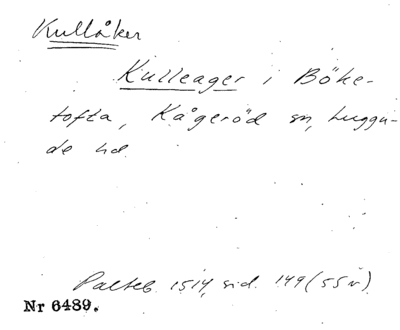 Kullåker
Kulleager i Böke-
tofta, Kågeröd sn, Luggu-
de hd.
Palteb. 1514, sid. 149 (55 v).
Nr 6489.